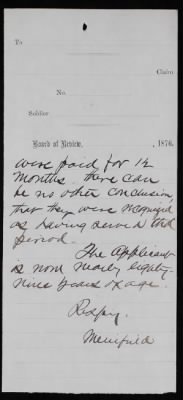 To
Claim
No.
Soldier
Board of Review, , 1876.
were paid for 12
months. there can
be no other conclusion,
that they were recognized
as having served that
period.
The Applicant
is now nearly eighty-
nine years of age.
Respy.
Merrifield